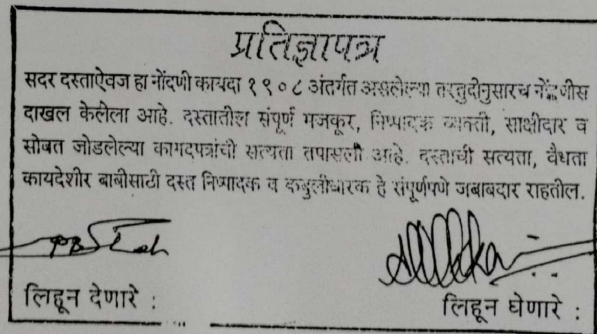 प्रतिज्ञापत्र
सदर दस्ताऐवज हा नोंदणी कायदा १९०८ अंतर्गत असलेल्या तरतुदीनुसारच नोंदणीस
दाखल केलेला आहे. दस्तातील संपूर्ण मजकूर, निष्पादक व्यक्ती, साक्षीदार व
सोबत जोडलेल्या कागदपत्रांची सत्यता तपासली आहे. दस्ताची सत्यता, वैधता
कायदेशीर बाबीसाठी दस्त निष्पादक व कबुलीधारक हे संपूर्णपणे जबाबदार राहतील.
लिहून देणारे :
लिहून घेणारे :